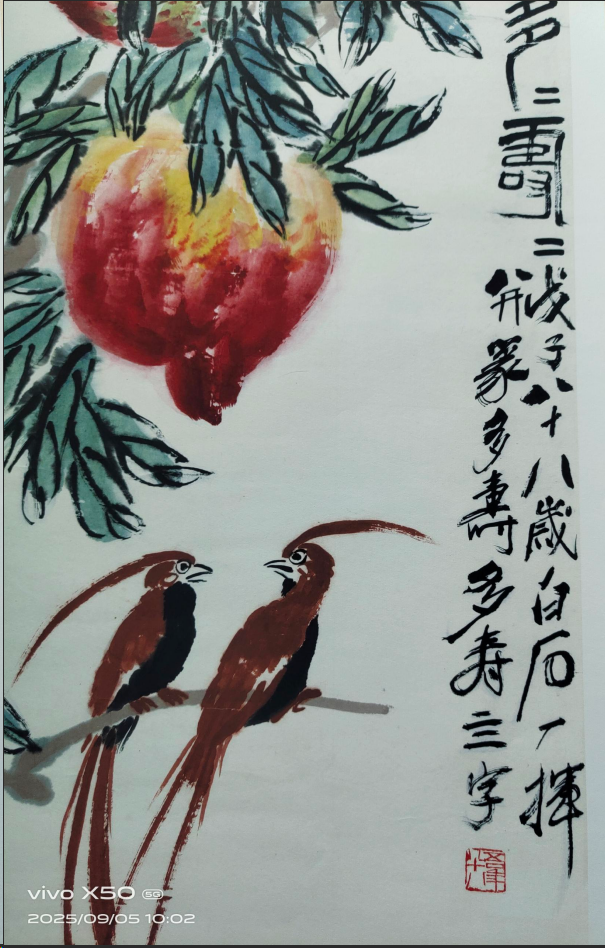 多二壽二戊子八十八歳白石一揮
并篆多壽多寿三字
vivo X50 5G
2025/09/05 10:02